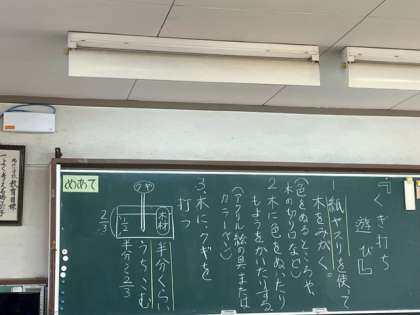 『くぎ打ち
遊び』
1.紙ヤスリを使って
木をみがく。
(色をぬるところや、
木の切り口など)
2.木に色をぬったり
もようをかいたりする。
(アクリル絵の具または
カラーペン)
3.木に、クギを
打つ
半分くらい
うちこむ
半分~2/3
クギ
木材
1/2
2/3
めあて
教育目標